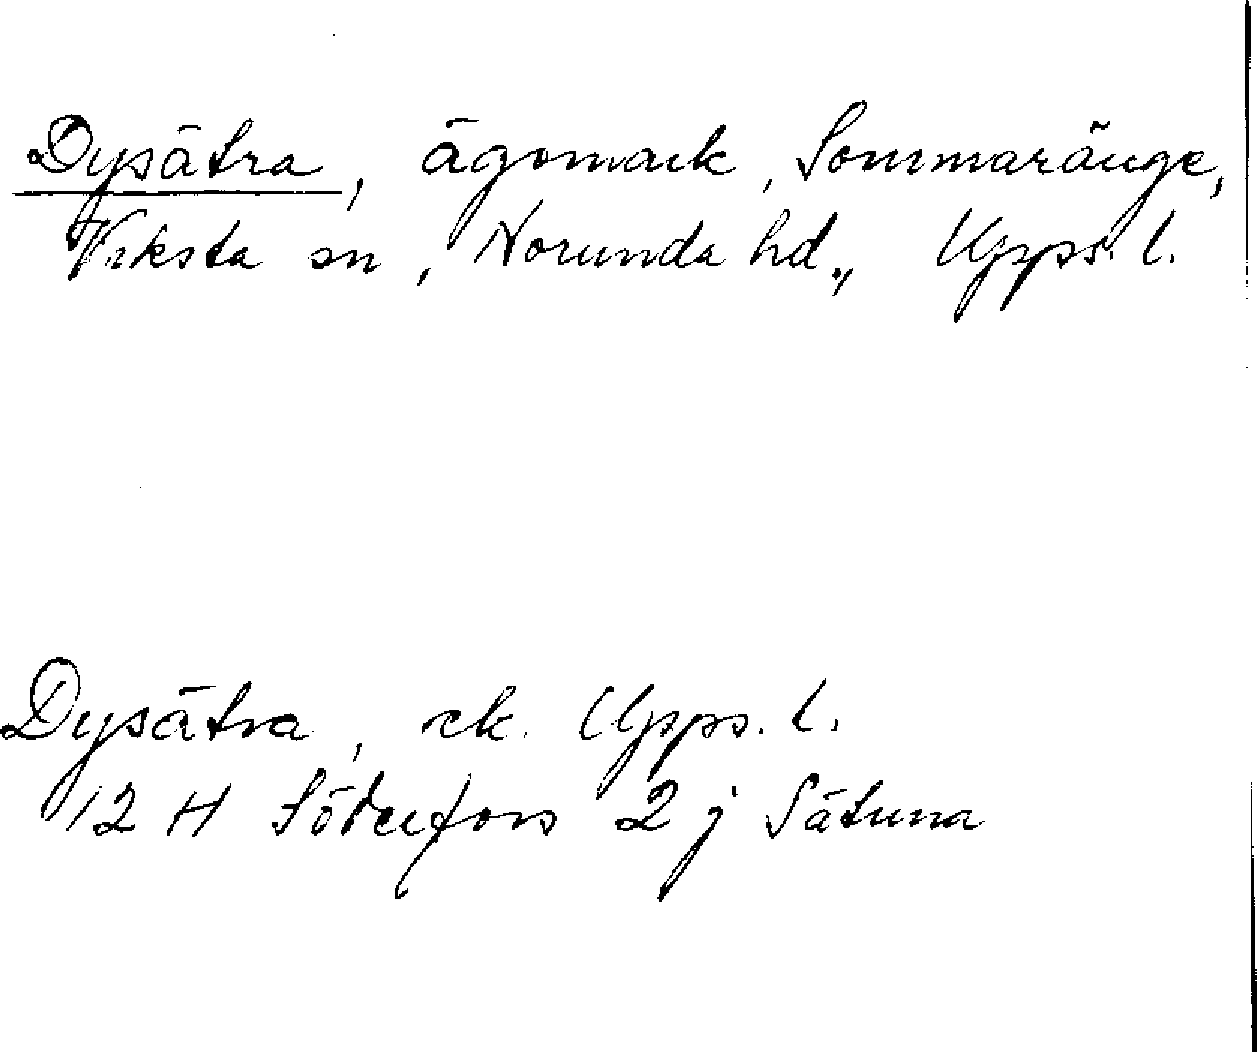 Dysätra, ägomark, Sommaränge,
Viksta sn, Norunda hd., Upps. l.
Dysätra, ek. Upps. l.
12 H Söderfors 2 j Sätuna